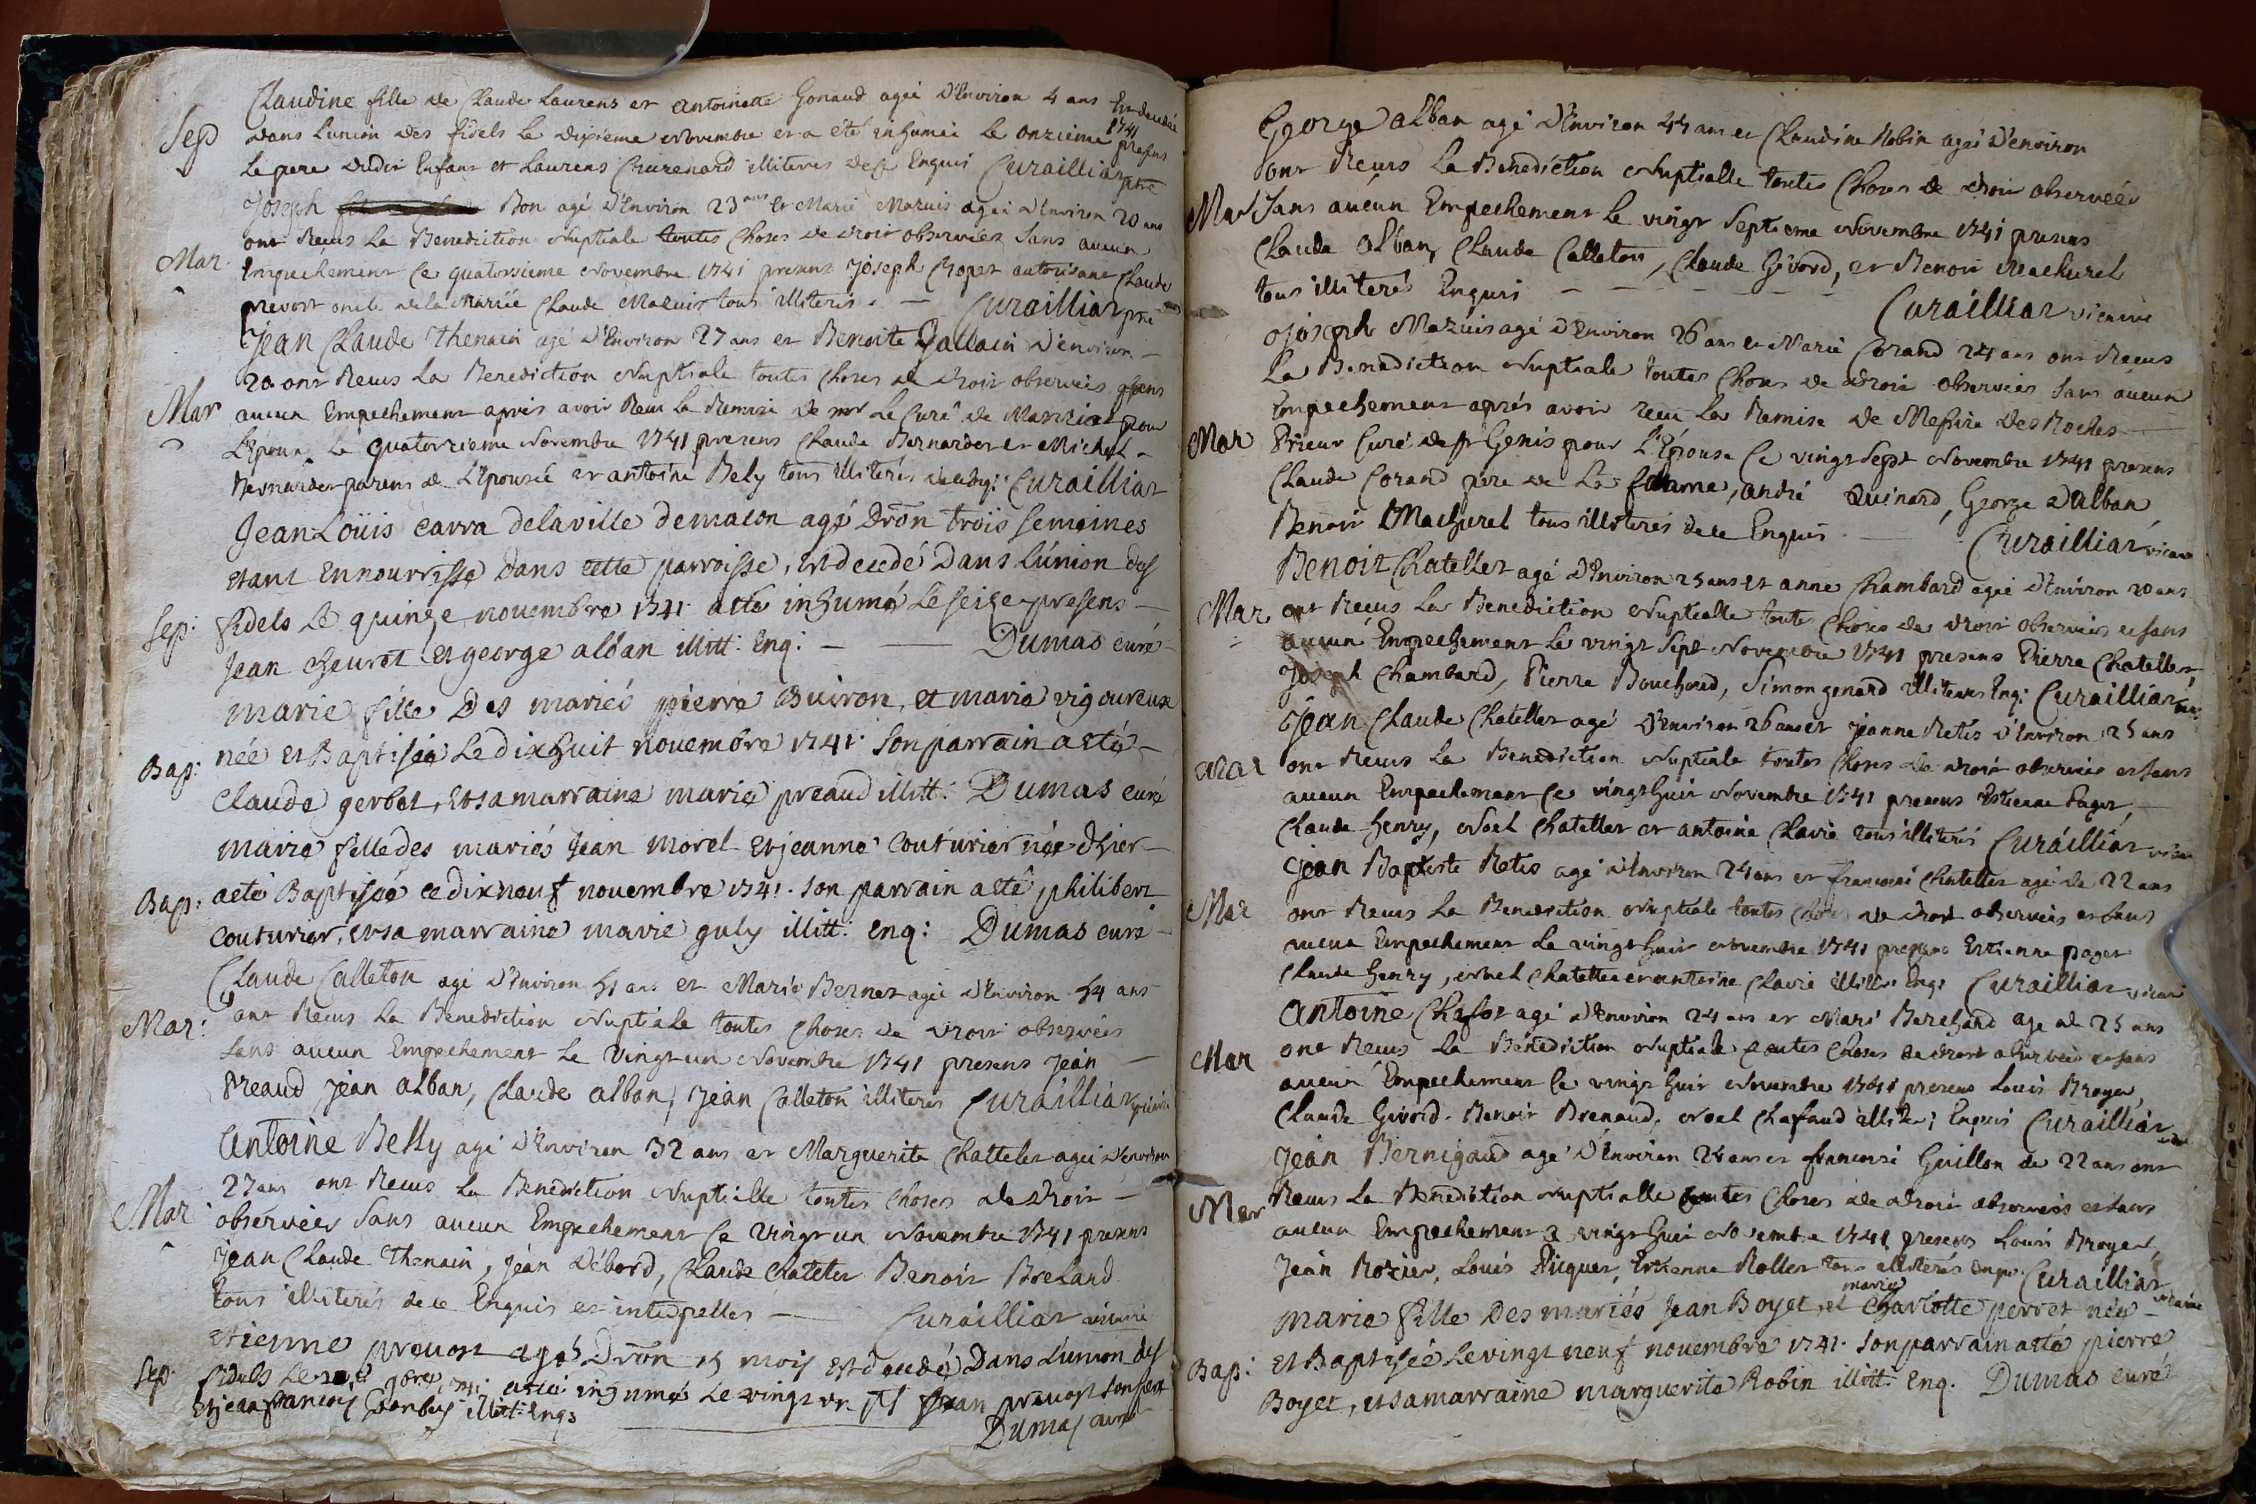 Claudine fille de Claude Laurens et antoinette Gonaud agée d'Environ 4 ans Est decedée
Sep
dans L'union des fidels Le dixieme Novembre et a été inhumée Le onzieme 1741 presens
Le pere dudit Enfant et Laurens Churenard illiteres de ce Enquis Curailliat ptre
Joseph Bon agé d'Environ 23 ans et Marie Mazuis agée d'Environ 20 ans
ont Recus La Benediction Nuptiale toutes Choses de droit observées Sans aucun
Mar
Empechement Ce quatorsieme Novembre 1741 presens Joseph Chopet autorisant Claude
prevost oncle de la Mariée Claude Mazuis tous illiterés. — Curailliat ptre
Jean Claude Thenain agé d'Environ 27 ans et Benoite Gallain d'environ
20 ont Recus La Benediction Nuptiale toutes Choses de droit observées Sans
Mar
aucun Empechement aprés avoir Recu La Remise de mr Le Curé de Manziat pour
L'Epoux Le quatorzieme Novembre 1741 presens Claude Bernardet et Michel
Bernardet parens de L'Epousée et antoine Bely tous illiterés de ce Enq: Curailliat
Jean Loüis carra delaville demacon agé Dron troïs semeines
etant Ennourrisse dans cette parroisse, est decedé Dans l'union des
Sep:
fidels Le quinze novembre 1741. a eté inhumé Le seize presens
Jean cheuret et george alban illitt: Enq: — — Dumas curé
marie fille Des mariés pierre Buiron, et marie vigoureux
Bap:
née et Baptisée Le dixhuit novembre 1741. Son parrain a eté
Claude gerbet, et sa marraine marie preaud illitt: Dumas curé
marie fille des mariés Jean morel et jeanne couturier née d'hier
Bap:
a eté Baptisée ce dixneuf novembre 1741. son parrain a eté philibert
couturier, et sa marraine marie guly illitt: enq: Dumas curé
Claude Calleton agé d'Environ 51 ans et Marie Bernet agée d'Environ 54 ans
Mar:
ont Recus La Benediction Nuptiale toutes Choses de droit observées
Sans aucun Empechement Le Vingt un Novembre 1741 presens Jean
Preaud Jean alban, Claude alban, Jean Calleton illiteres Curailliat vicaire
Antoine Belly agé d'Environ 32 ans et Marguerite Chatteles agée d'environ
27 ans ont Recus La Benediction Nuptialle toutes Choses de droit
Mar
observées Sans aucun Empechement Ce Vingt un Novembre 1741 presens
Jean Claude Thenain, Jean Débord, Claude Chatelet Benoit Breland
tous illiterés de ce Enquis et interpelles — Curailliat vicaire
etienne prevost agé Dron 15 mois est decedé Dans L'union des
Sep
fidels Le a eté inhumé Le vingt un Jean prevost son pere
et jean francois illitt: Enq:
Dumas curé
George alban agé d'Environ 45 ans et Claudine Robin agée d'environ
ont Recus La Benediction Nuptialle toutes Choses de droit observées
Mar
Sans aucun Empechement Le vingt Septieme Novembre 1741 presens
Claude Alban, Claude Calleton, Claude Givord, et Benoit Machurel
tous illiterés Enquis — — — — Curailliat vicaire
Joseph Mazuis agé d'Environ 26 ans et Marie Corand 24 ans ont Recus
La Benediction Nuptiale toutes Choses de droit observées Sans aucun
Empechement aprés avoir recu La Remise de Messire Des Roches
Mar
Prieur Curé de st Genis pour L'Epouse Ce vingt Sept Novembre 1741 presens
Claude Corand pere de La femme, andré Quinard, George Dalban
Benoit Machurel tous illiterés de ce Enquis — Curailliat vicaire
Benoit Chatellet agé d'Environ 25 ans et anne Chambard agée d'Environ 20 ans
Mar
ont Recus La Benediction Nuptialle toutes Choses de droit observées et Sans
aucun Empechement Le vingt Sept Novembre 1741 presens Pierre Chatellet,
Joseph Chambard, Pierre Bouchoud, Simon genard illiteres Enq: Curailliat vic
Jean Claude Chatellet agé d'Environ 26 ans et Jeanne Retis d'Environ 25 ans
Mar
ont Recus La Benediction Nuptiale toutes Choses de droit observées et Sans
aucun Empechement Ce vingt huit Novembre 1741 presens Estienne Paget,
Claude Henry, Noel Chatellet et antoine Clavie tous illiterés Curailliat vicaire
Jean Baptiste Retis agé d'Environ 24 ans et francoise Chatellet agée de 22 ans
Mar
ont Recus La Benediction Nuptiale toutes Choses de droit observées et Sans
aucun Empechement Le vingt huit Novembre 1741 presens Estienne paget
Claude Henry, Noel Chatellet et antoine Clavie illitr: Enq: Curailliat vicaire
Antoine Chafot agé d'Environ 24 ans et Marie Berchard agée de 25 ans
Mar
ont Recus La Bénédiction Nuptiale toutes Choses de droit observées et Sans
aucun Empechement Ce vingt huit Novembre 1741 presens Louis Broyer,
Claude Givord. Benoit Brenaud, Noel Chafaud illiter; Enquis Curailliat
Jean Bernigaud agé d'Environ 24 ans et francoise Guillon de 22 ans ont
Mar
Recus La Benediction Nuptialle toutes Choses de droit observées et Sans
aucun Empechement Ce vingt huit Novembre 1741 presens Louis Broyer,
Jean Rozier, Louis Picquet, Estienne Rollet tous illiterés enqu. Curailliat vicaire
marie
marie fille Des mariés Jean Boyet, et Charlotte perret née
Bap:
et Baptisée Le vingt neuf novembre 1741. son parrain a eté pierre
Boyet, et sa marraine marguerite Robin illitt: Enq. Dumas curé